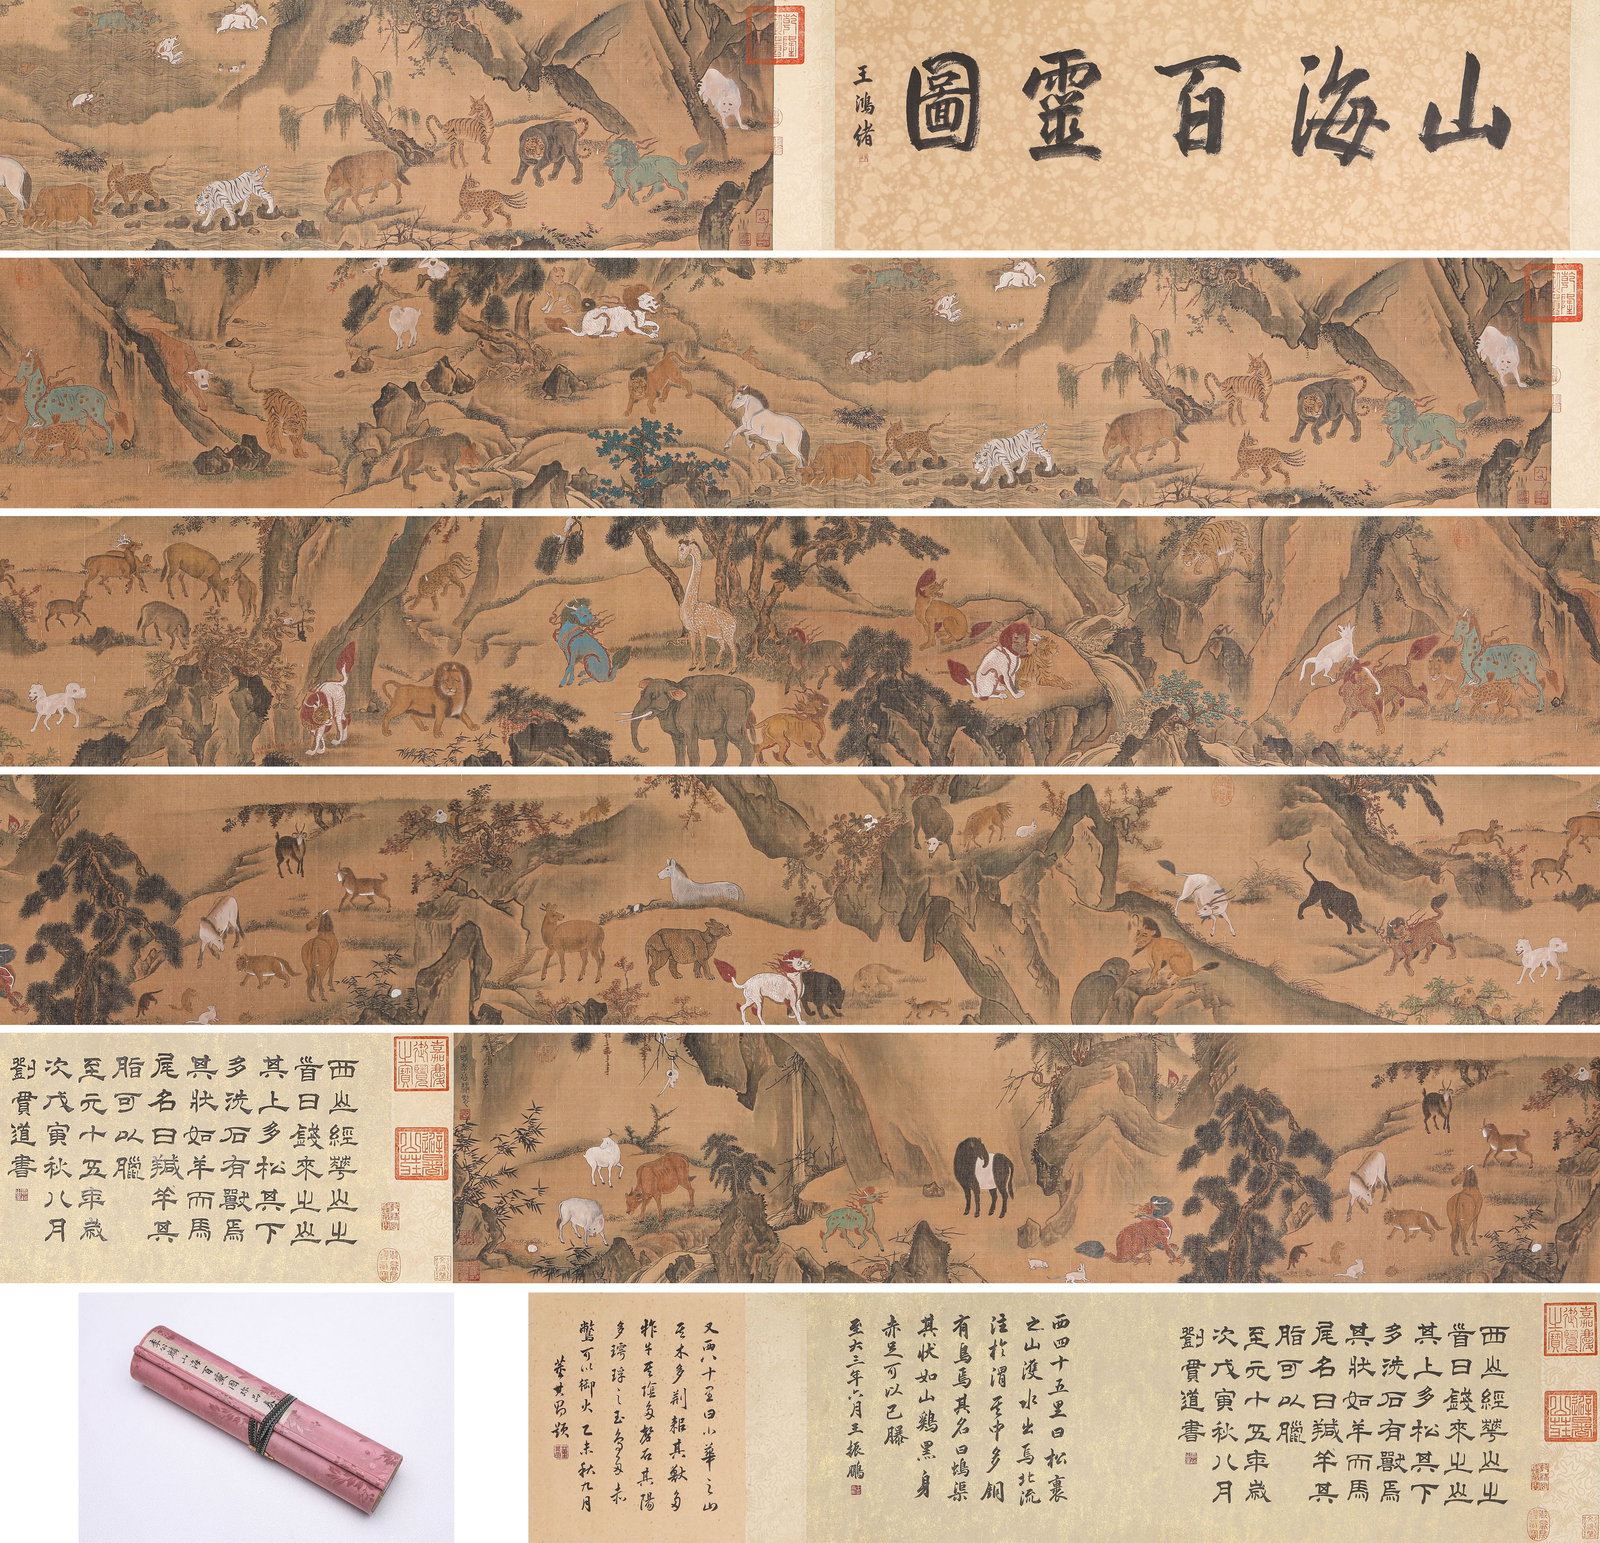 山海百靈圖
王鴻緒
西山經華山之
首曰錢來之山
其上多松其下
多洗石有獸焉
其狀如羊而馬
尾名曰羬羊其
脂可以臘
至元十五年歲
次戊寅秋八月
劉貫道書
嘉慶御覽之寶
避暑山莊
李公麟山海百靈圖珍品
嘉慶御覽之寶
避暑山莊
西山經華山之
首曰錢來之山
其上多松其下
多洗石有獸焉
其狀如羊而馬
尾名曰羬羊其
脂可以臘
至元十五年歲
次戊寅秋八月
劉貫道書
西四十五里曰松裏
之山濩水出焉北流
注於渭其中多銅
有鳥焉其名曰渠
其狀如山鷄黑身
赤足可以已
至大三年六月王振鵬
又西八十里曰小華之山
其木多荊其獸多
㸲牛其陰多磬石其陽
多㻬琈之玉鳥多赤
鷩可以御火乙未秋九月
董其昌題